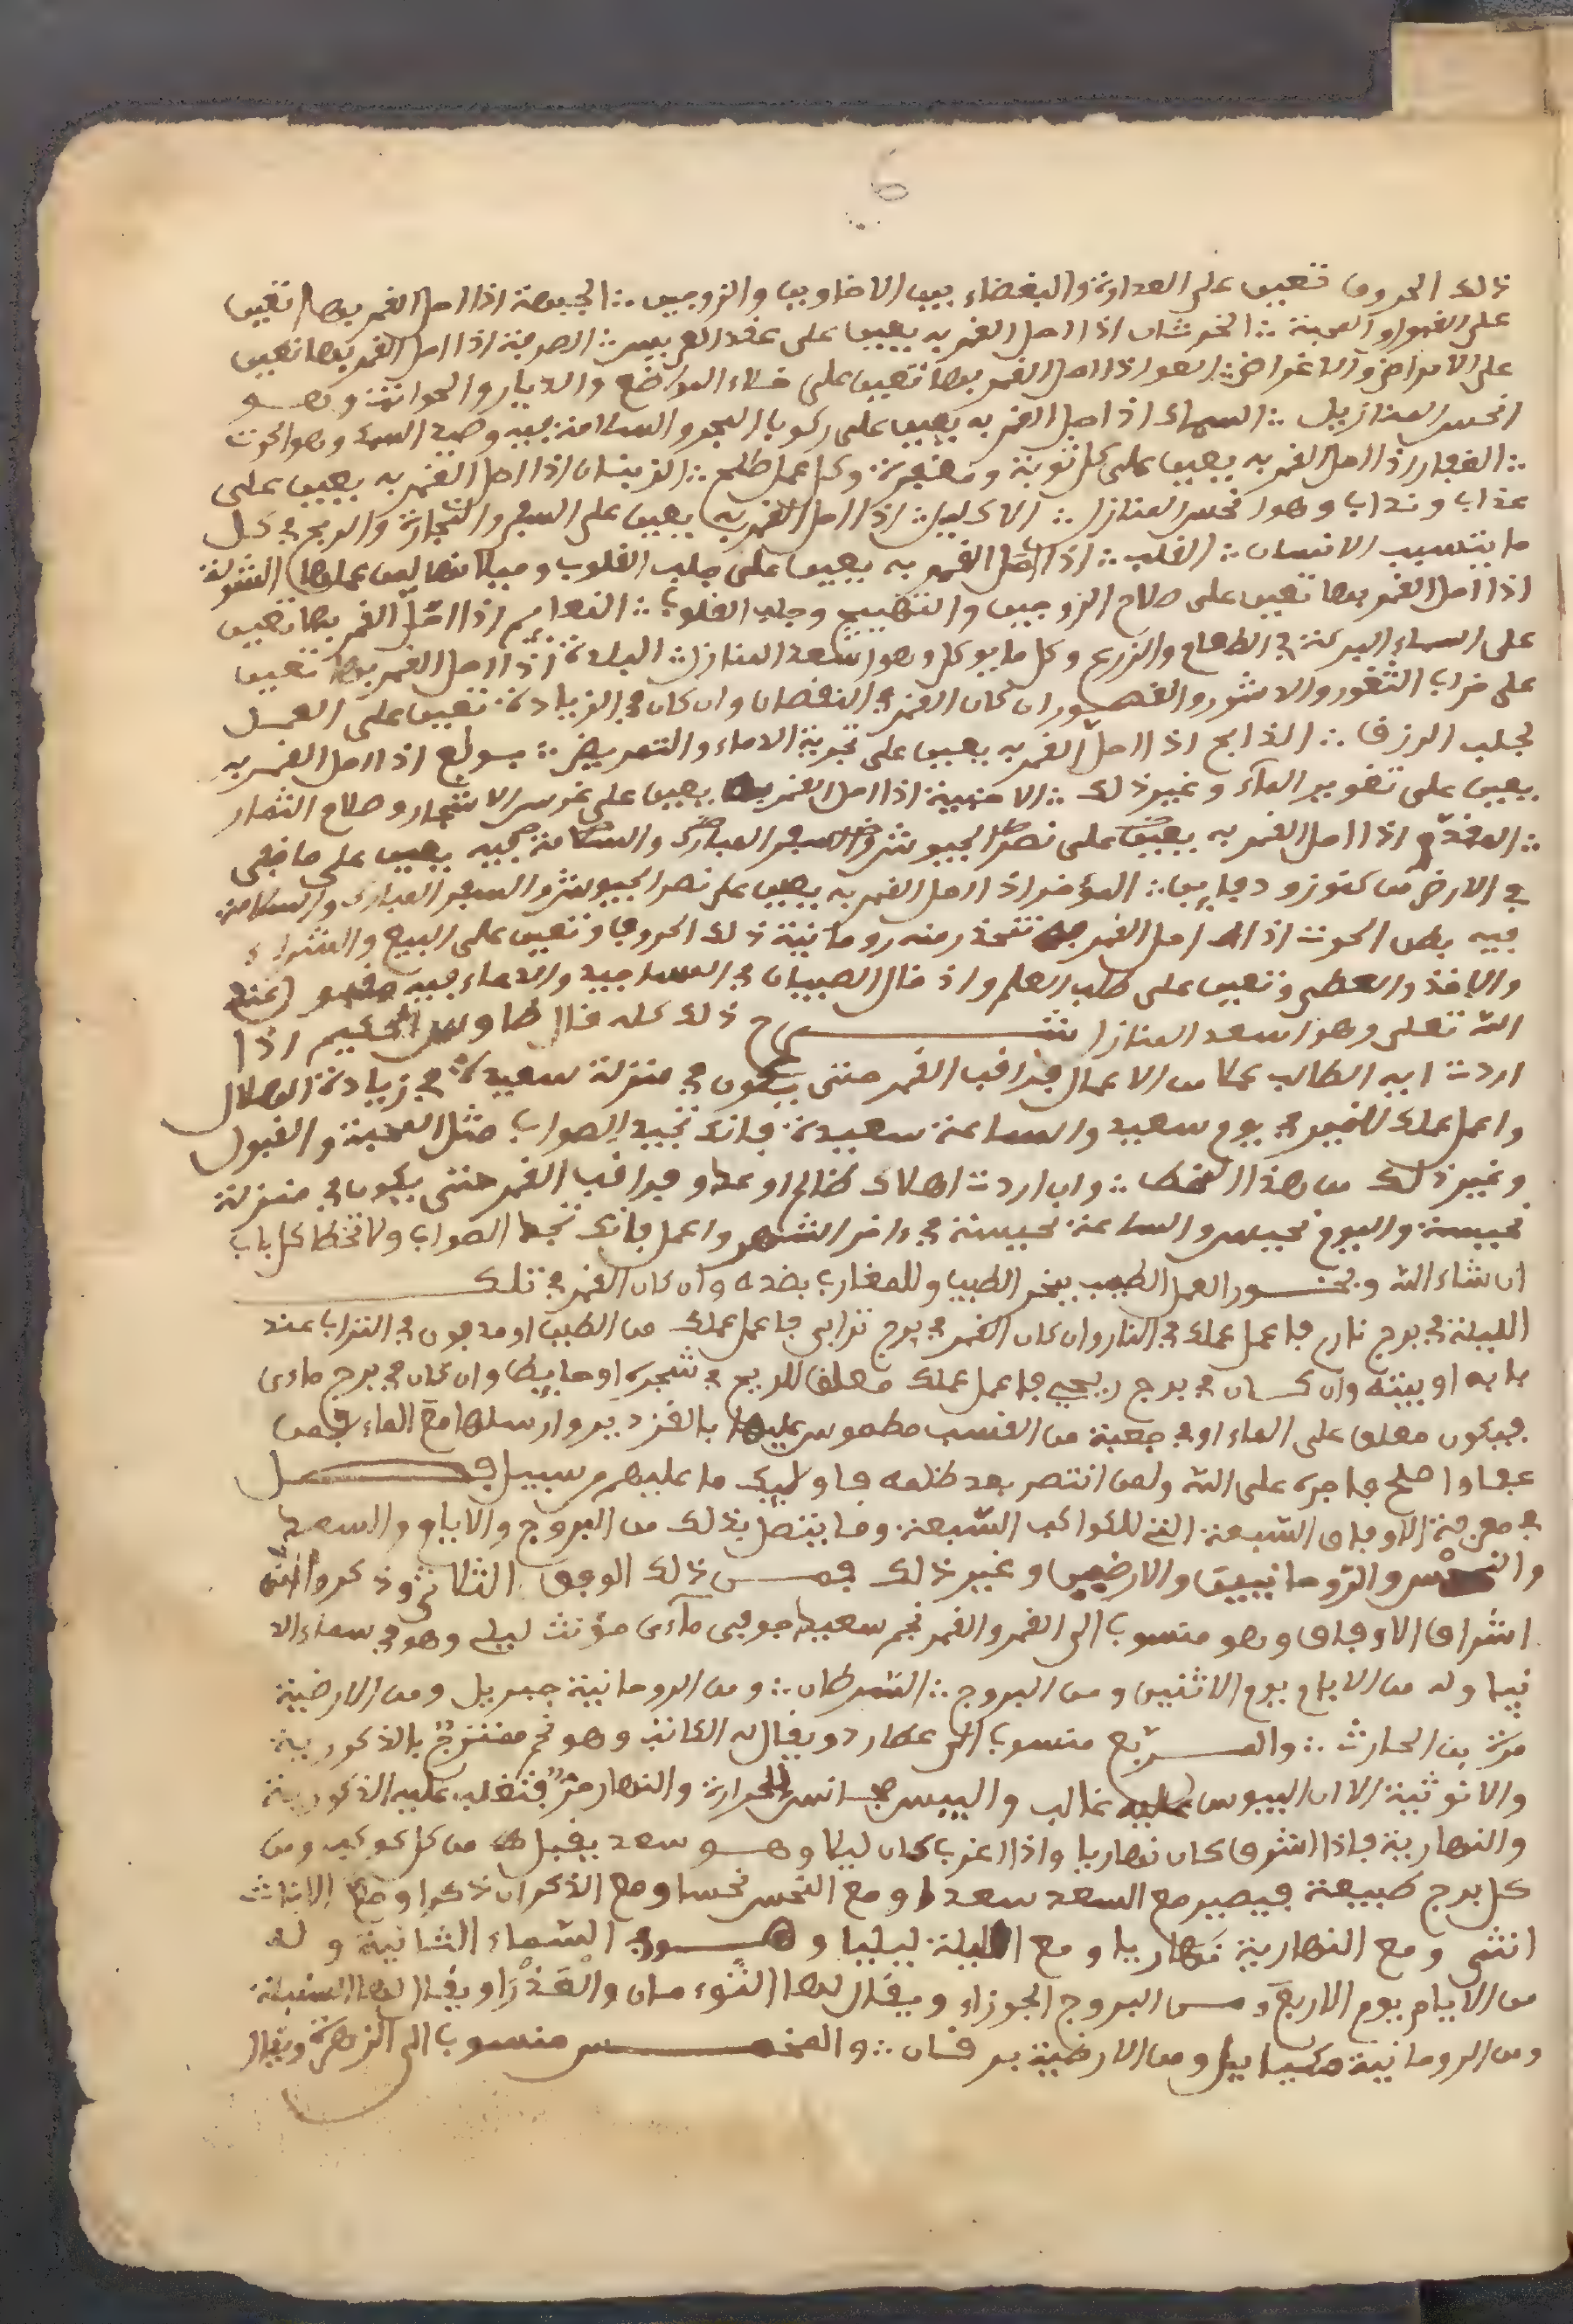 6
ذالك الحروف تعين على العداوة والبغضاء بين الاخاوين والزوجين ∴ الجبهة اذا احل القمر بها تعين
على القبول والمحبة ∴ الخرشان اذا احل القمر به يعين على عقد العريس ∴ الصرفة اذا احل القمر بها تعين
على الامراض والاغراض ∴ العوا اذا احل القمر بها تعين على خلاء المواضع والديار والحوانت وهو
انحس المنازيل ∴ السماك اذا حل القمر به يعين على ركوب البحر والسلامة فيه وصيد السمك وهو الحوت
∴ الغفار اذا احل القمر به يعين على كل توبة ومغفرة وكل عمل صالح ∴ الزبنان اذا احل القمر به يعين على
عذاب وهو انحس المنازل ∴ الاكليل ∴ اذا احل القمر به يعين على السفر والتجارة والربح في كل
ما يتسبب الانسان ∴ القلب ∴ اذا احل القمر به يعين على جلب القلوب وميلانها لمن عملها الشولة
اذا احل القمر بها تعين على صلاح الزوجين والتهييج وجلب القلوب ∴ النعايم اذا احل القمر بها تعين
على اسماء البركة في الطعام والزرع وكل ما يوكل وهو اسعد المنازل ∴ البلدة اذا احل القمر بها تعين
على خراب الثغور والاشور والقصور ان كان القمر في النقصان وان كان في الزيادة تعين على العمل
لجلب الرزق ∴ الذابح اذا احل القمر به يعين على تجرية الدماء والتمريض ∴ بولع اذا احل القمر به
يعين على تغوير الماء وغير ذلك ∴ الاخبية اذا احل القمر بها يعين على غرس الاشجار وصلاح الثمار
∴ المقدم اذا احل القمر به يعين على نصر الجيوش والسفر المبارك والسلامة فيه يعين على ما خفي
في الارض من كنوز ودفاين ∴ المؤخر اذا احل القمر به يعين على نصر الجيوش والسفر المبارك والسلامة
فيه بطن الحوت اذا احل القمر به تتخذ منه روحانية ذلك الحروف وتعين على البيع والشراء
والاخذ والعطي وتعين على طلب العلم واذ خال الصبيان في المساجيد والدعاء فيه عند
الله تعلى وهو اسعد المنازل شرح ذلك كله قال طاوس الحكيم اذا
اردت ايه الطالب عملا من الاعمال فراقب القمر حتى يكون في منزلة سعيدة في زيادة الهلال
واعمل عملك للخير في يوم سعيد والساعة سعيدة فانك تجيد الصواب مثل المحبة والقبول
وغير ذلك من هذا النمط ∴ وان اردت اهلاك ظالم او عدو فراقب القمر حتى يكون في منزلة
نحيسة واليوم نحيس والساعة نحيسة في ءاخر الشهر واعمل فانك تجد الصواب ولا تخطا كل باب
ان شاء الله وبخور العمل الطيب ببخر الطيب وللمغارب بضده وان كان القمر في تلك
الليلة في برج نارى فاعمل عملك في النار وان كان القمر في برج ترابي فاعمل عملك من الطين او مدفون في التراب عند
بابه او بيته وان كان في برج ريحي فاعمل عملك معلق للريح في شجرة او حايط وان كان في برج ماءى
فيكون معلق على الماء او في جعبة من القصب مطموس عليها بالقزدير وارسلها مع الماء فمن
عفا واصلح فاجره على الله ولمن انتصر بعد ظلمه فاوليك ما عليهم من سبيل فصل
في معرفة الاوفاق السبعة التي للكواكب السبعة وما يتصل بذلك من البروج والايام والسعد
والنحس والروحانيين والارضيين وغير ذلك فمن ذلك الوفق الثلاثي وذكروا انه
اشراف الاوفاق وهو منسوب الى القمر والقمر نجم سعيد جوفى ماءى مؤنث ليلى وهو في سماء الد
نيا وله من الايام يوم الاثنين ومن البروج ∴ السرطان ∴ ومن الروحانية جبريل ومن الارضية
مرة بن الحارث ∴ والمربع منسوب الى عطارد ويقال له الكاتب وهو نجم ممتزج بالذكورية
والانوثية الا ان اليبوس عليه غالب واليبس انس الحرارة والنهار فتغلب عليه الذكورية
والنهارية فاذا اشرق كان نهاريا واذا اغرب كان ليلا وهو سعد يقبل من كل كوكب ومن
كل برج طبيعة فيصير مع السعد سعدا ومع النحس نحسا ومع الذكران ذكرا ومع الاناث
انثى ومع النهارية نهاريا ومع الليلة ليليا وهو في السماء الثانية وله
من الايام يوم الاربع ومن البروج الجوزاء ويقال لها التوءمان والعذرا ويقال لها السنبلة
ومن الروحانية ميكاييل ومن الارضية برقان ∴ والمخمس منسوب الى الزهرة ويقال